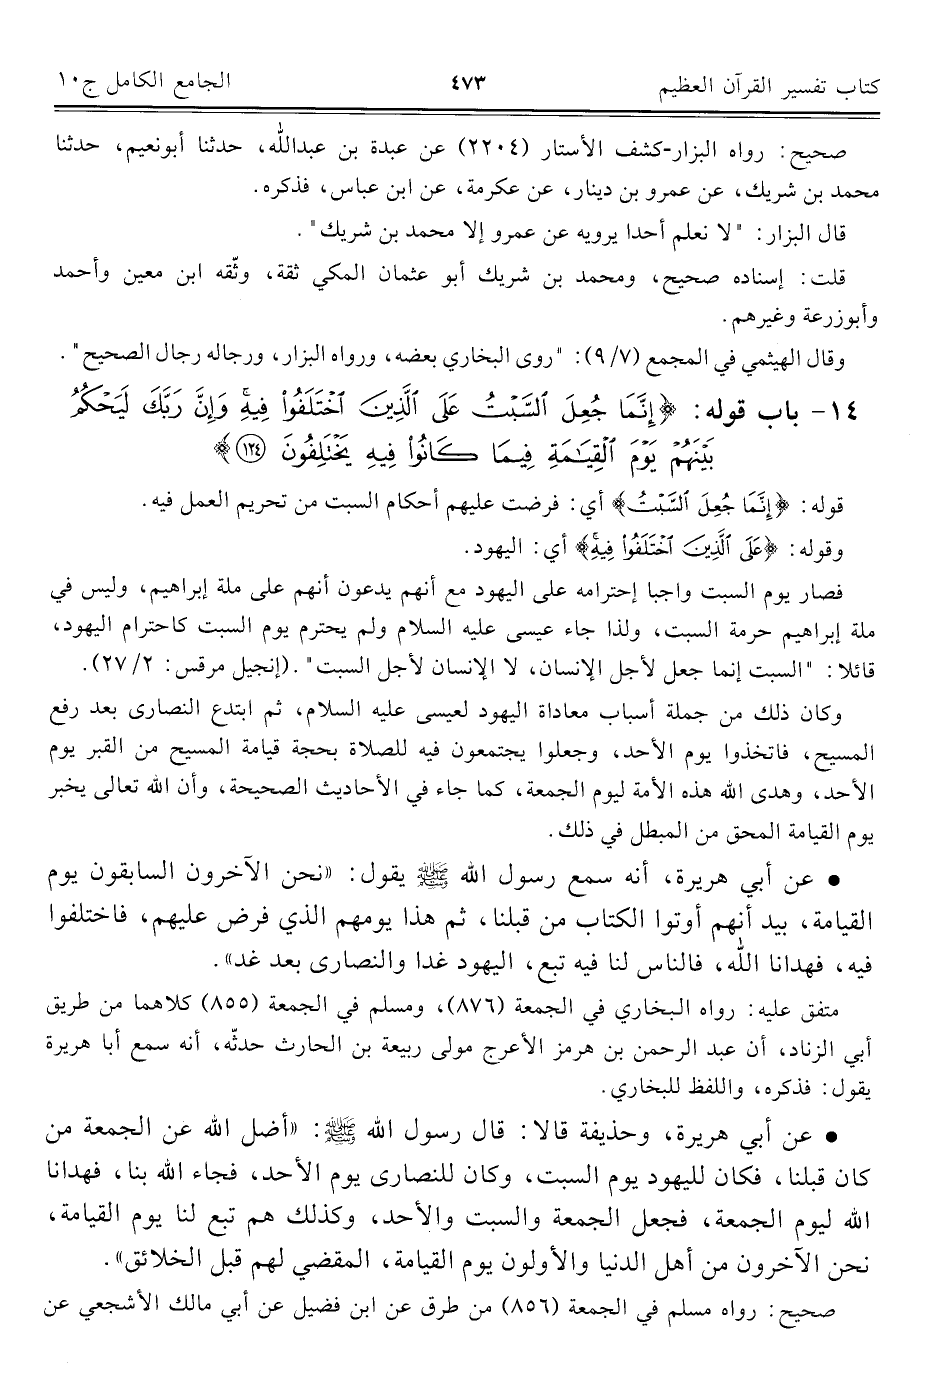 كتاب تفسير القرآن العظيم ٤٧٣ الجامع الكامل ج١٠
صحيح: رواه البزار-كشف الأستار (٢٢٠٤) عن عبدة بن عبدالله، حدثنا أبونعيم، حدثنا
محمد بن شريك، عن عمرو بن دينار، عن عكرمة، عن ابن عباس، فذكره.
قال البزار: "لا نعلم أحدا يرويه عن عمرو إلا محمد بن شريك".
قلت: إسناده صحيح، ومحمد بن شريك أبو عثمان المكي ثقة، وثّقه ابن معين وأحمد
وأبوزرعة وغيرهم.
وقال الهيثمي في المجمع (٧/ ٩): "روى البخاري بعضه، ورواه البزار، ورجاله رجال الصحيح".
١٤- باب قوله: ﴿إِنَّمَا جُعِلَ ٱلسَّبْتُ عَلَى ٱلَّذِينَ ٱخْتَلَفُوا۟ فِيهِۚ وَإِنَّ رَبَّكَ لَيَحْكُمُ
بَيْنَهُمْ يَوْمَ ٱلْقِيَٰمَةِ فِيمَا كَانُوا۟ فِيهِ يَخْتَلِفُونَ ١٢٤﴾
قوله: ﴿إِنَّمَا جُعِلَ ٱلسَّبْتُ﴾ أي: فرضت عليهم أحكام السبت من تحريم العمل فيه.
وقوله: ﴿عَلَى ٱلَّذِينَ ٱخْتَلَفُوا۟ فِيهِۚ﴾ أي: اليهود.
فصار يوم السبت واجبا إحترامه على اليهود مع أنهم يدعون أنهم على ملة إبراهيم، وليس في
ملة إبراهيم حرمة السبت، ولذا جاء عيسى عليه السلام ولم يحترم يوم السبت كاحترام اليهود،
قائلا: "السبت إنما جعل لأجل الإنسان، لا الإنسان لأجل السبت".(إنجيل مرقس: ٢/ ٢٧).
وكان ذلك من جملة أسباب معاداة اليهود لعيسى عليه السلام، ثم ابتدع النصارى بعد رفع
المسيح، فاتخذوا يوم الأحد، وجعلوا يجتمعون فيه للصلاة بحجة قيامة المسيح من القبر يوم
الأحد، وهدى الله هذه الأمة ليوم الجمعة، كما جاء في الأحاديث الصحيحة، وأن الله تعالى يخبر
يوم القيامة المحق من المبطل في ذلك.
• عن أبي هريرة، أنه سمع رسول الله ﷺ يقول: «نحن الآخرون السابقون يوم
القيامة، بيد أنهم أوتوا الكتاب من قبلنا، ثم هذا يومهم الذي فرض عليهم، فاختلفوا
فيه، فهدانا الله، فالناس لنا فيه تبع، اليهود غدا والنصارى بعد غد».
متفق عليه: رواه البخاري في الجمعة (٨٧٦)، ومسلم في الجمعة (٨٥٥) كلاهما من طريق
أبي الزناد، أن عبد الرحمن بن هرمز الأعرج مولى ربيعة بن الحارث حدثّه، أنه سمع أبا هريرة
يقول: فذكره، واللفظ للبخاري.
• عن أبي هريرة، وحذيفة قالا: قال رسول الله ﷺ: «أضل الله عن الجمعة من
كان قبلنا، فكان لليهود يوم السبت، وكان للنصارى يوم الأحد، فجاء الله بنا، فهدانا
الله ليوم الجمعة، فجعل الجمعة والسبت والأحد، وكذلك هم تبع لنا يوم القيامة،
نحن الآخرون من أهل الدنيا والأولون يوم القيامة، المقضي لهم قبل الخلائق».
صحيح: رواه مسلم في الجمعة (٨٥٦) من طرق عن ابن فضيل عن أبي مالك الأشجعي عن